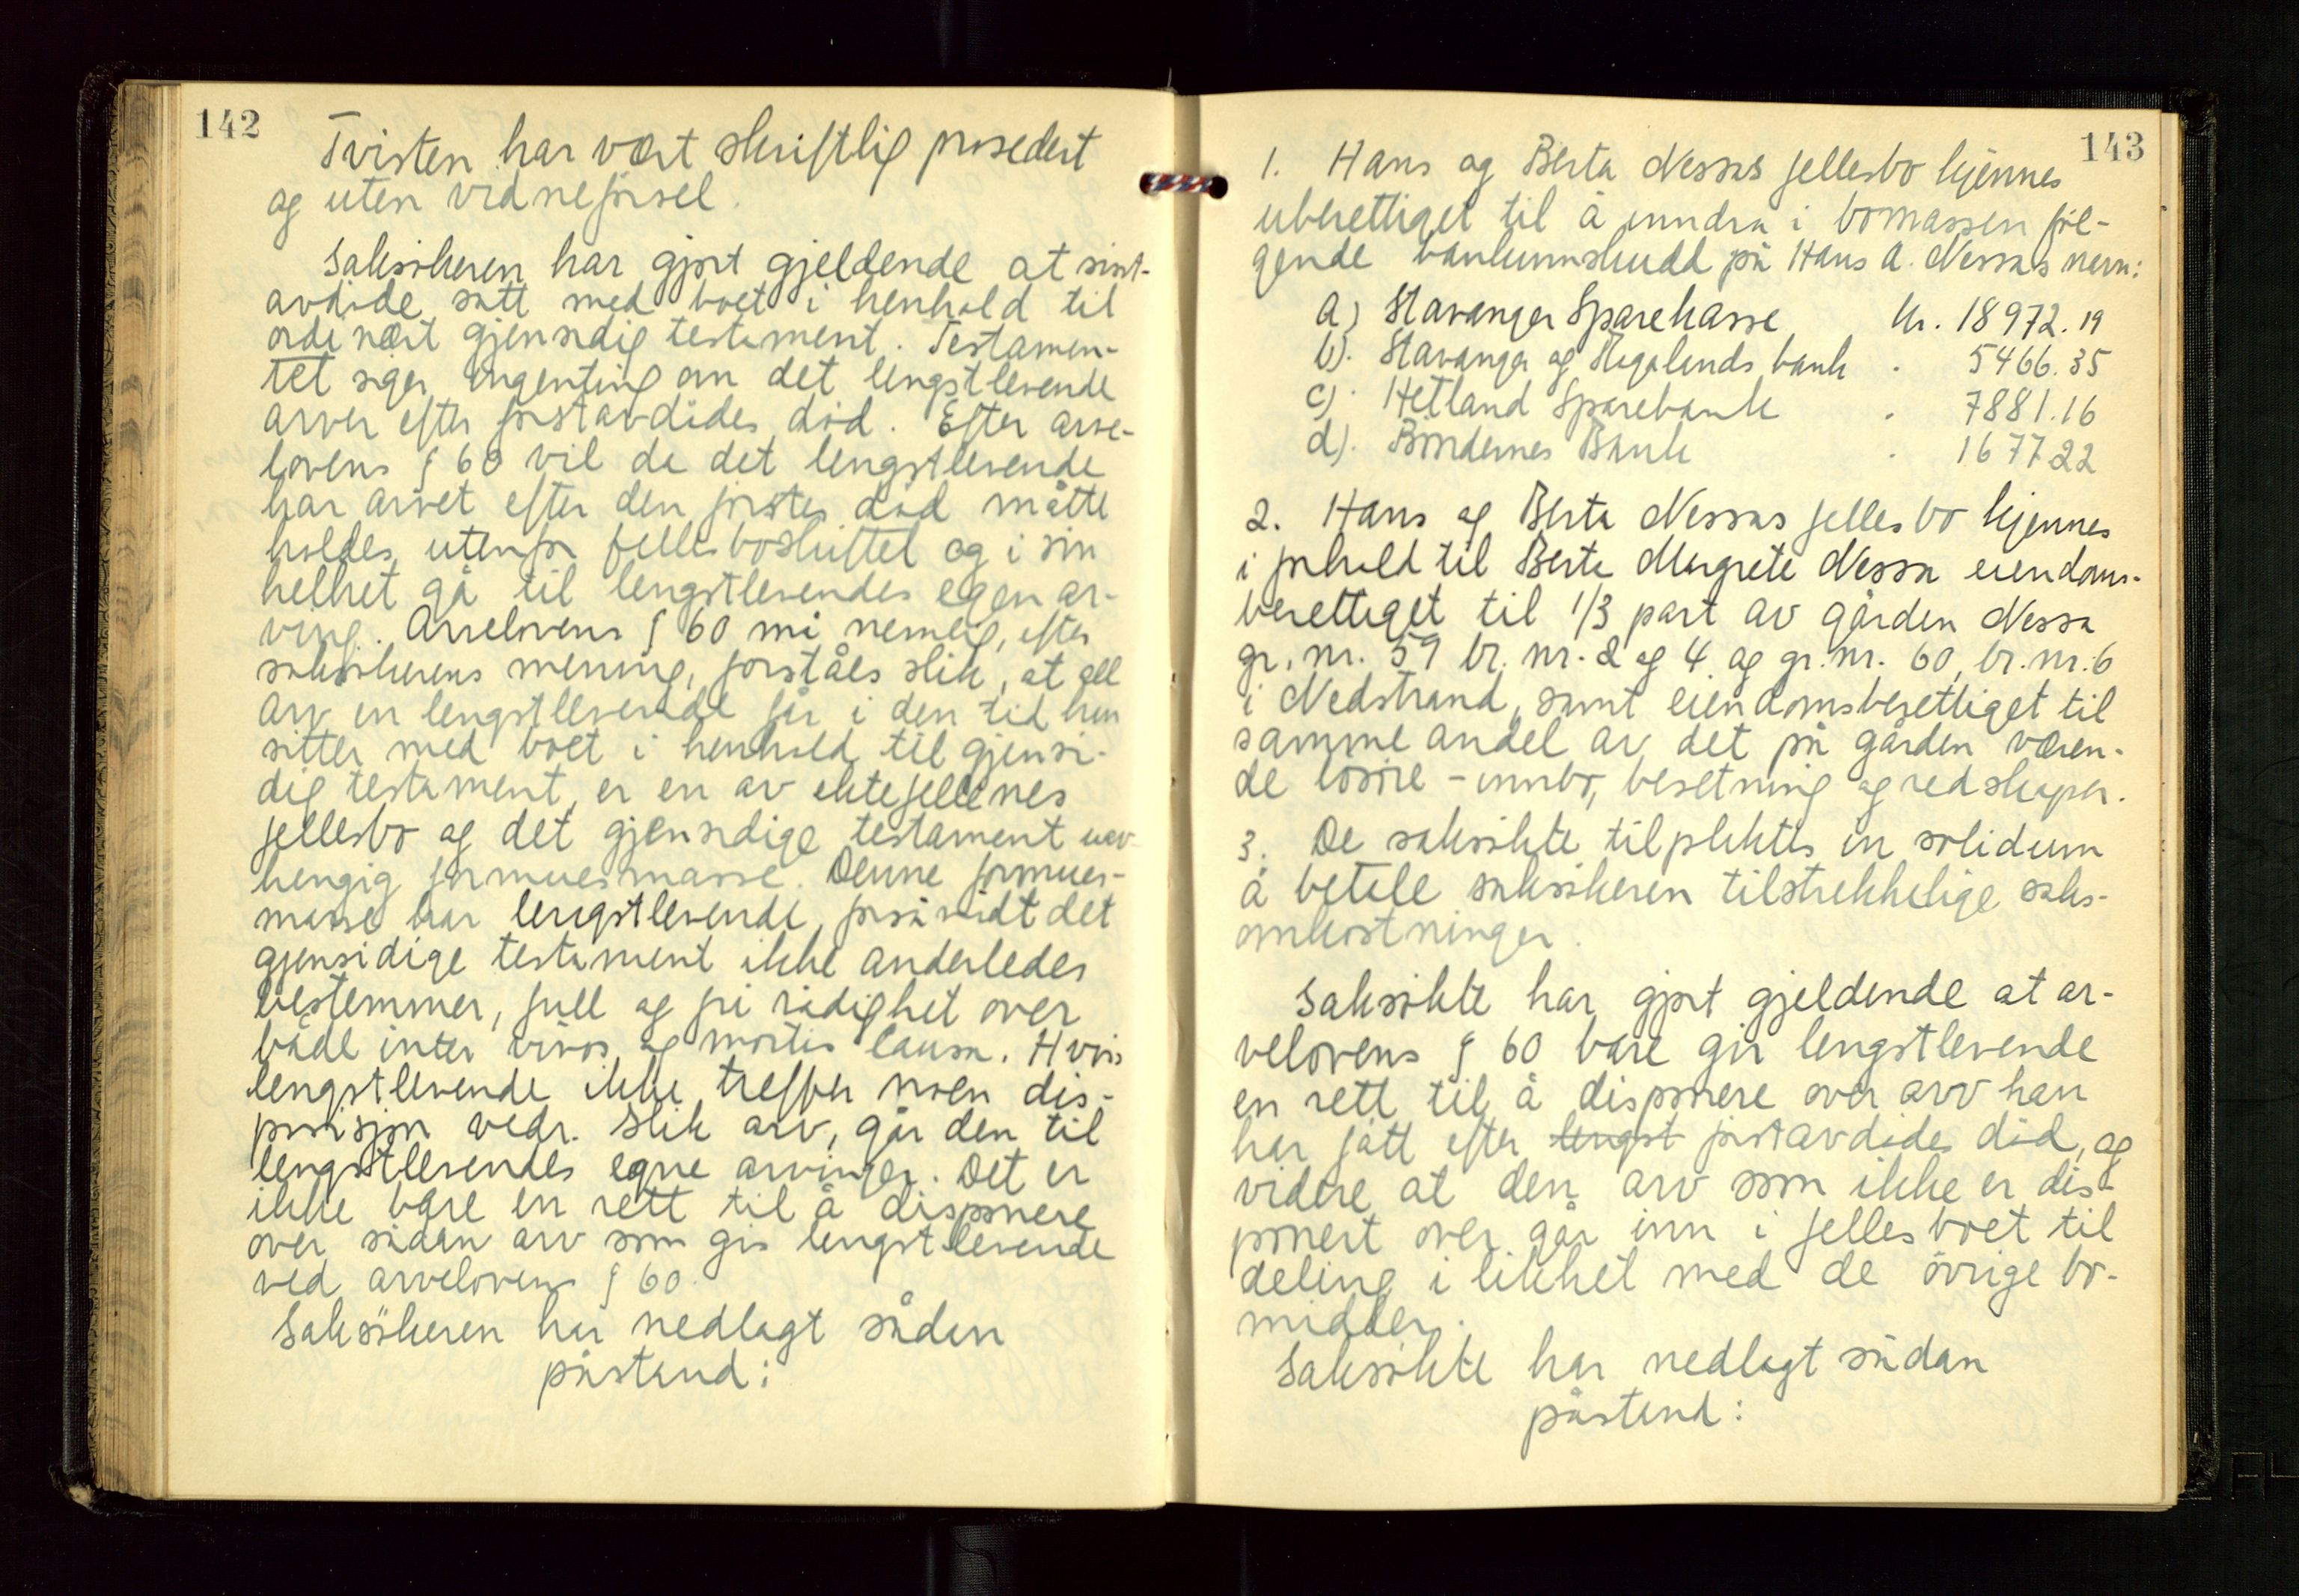 142
Tvisten har vært skriftlig prosedert
og uten vidneførsel.
Saksökeren har gjort gjeldende at sist-
avdöde satt med boet i henhold til
ordenært gjensidig testament. Testamen-
tet siger ingenting om det lengstlevende
arver efter förstavdödes död. Efter arve-
lovens § 60 vil da det lengstlevende
har arvet efter den förstes död måtte
holdes utenfor fellesboskiftet og i sin
helhet gå til lengstlevendes egen ar-
ving. Arvelovens § 60 må nemlig, efter
saksökerens mening, forståes slik, at all
arv en lengstlevende får i den tid hun
sitter med boet i henhold til gjensi-
dig testament, er en av ektefellenes
fellesbo og det gjensidige testament uav-
hengig formuesmasse. Denne formues-
masse har lengstlevende, forsåvidt det
gjensidige testament ikke anderledes
bestemmer, full og fri rådighet over
både inter vivos og mortis causa. Hvis
lengstlevende ikke treffer noen dis-
posisjon vedr. slik arv, går den til
lengstlevendes egne arvinger. Det er
ikke bare en rett til å disponere
over sådan arv som gis lengstlevende
ved arvelovens § 60.
Saksökeren har nedlagt sådan
påstand:
143
1. Hans og Berta Nessas fellesbo kjennes
uberettiget til å inndra i bomassen föl-
gende bankinnskudd på Hans A. Nessas navn:
a) Stavanger Sparekasse Kr. 18972.19
b). Stavanger og Rogalands bank . 5466.35
c). Hetland Sparebank . 7881.16
d). Böndernes Bank . 1677.22
2. Hans og Berta Nessas fellesbo kjennes
i forhold til Berta Margrete Nessa eiendoms-
berettiget til 1/3 part av gården Nessa
gr. nr. 59 br. nr. 2 og 4 og gr. nr. 60, br. nr. 6
i Nedstrand, samt eiendomsberettiget til
samme andel av det på gården væren-
de lösöre - innbo, besetning og redskaper.
3. De saksökte tilpliktes in solidum
å betale saksökeren tilstrekkelige saks-
omkostninger.
Saksökte har gjort gjeldende at ar-
velovens § 60 bare gir lengstlevende
en rett til å disponere over arv han
har fått efter lengst förstavdödes död, og
videre at den arv som ikke er dis-
ponert over går inn i fellesboet til
deling i likhet med de övrige bo-
midler.
Saksökte har nedlagt sådan
påstand: